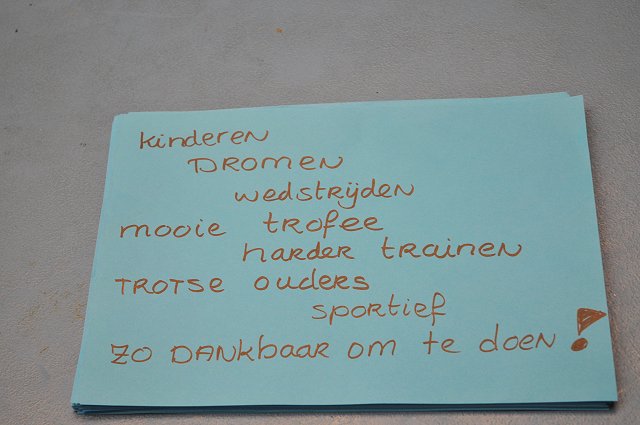 kinderen
DROMEN
wedstrijden
mooie trofee
harder trainen
TROTSE ouders
sportief
ZO DANKbaar om te doen!